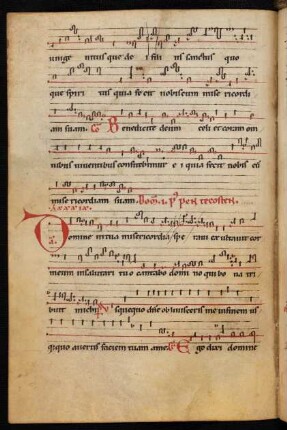 unige nitus que de i fili us sanctus quo
que spiri tus quia fe cit nobiscum mise ricordi
am suam. Co Benedicite deum celi et coram om
nibus viventibus confitebimur e i quia fecit nobis cũ
misericordiam suam. Dom. i. p' pentecosten.
Domine in tua misericordia spe ravi exultavit cor
meum in salutari tuo cantabo domi no qui bo na tri
buit michi Usquequo dñe oblivisceris me in finem us
quequo avertis faciem tuam a me. Ego dixi domine